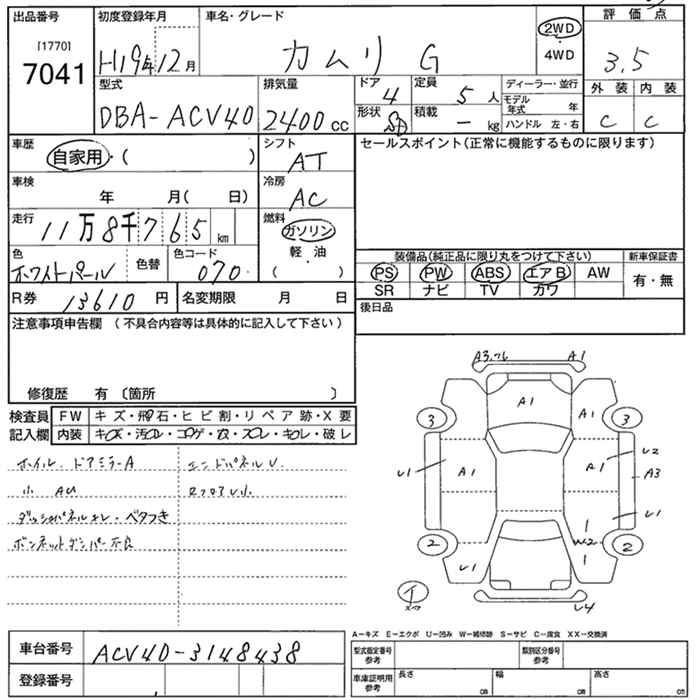 出品番号
[1770]
7041
初度登録年月
H19年12月
車名・グレード
カムリ G
2WD
・
4WD
評価点
3.5
型式
DBA-ACV40
排気量
2400cc
ドア
4
定員
5人
形状
積載
- kg
ディーラー・並行
モデル年式 年
ハンドル 左・右
外装 内装
C C
車歴
自家用・( )
シフト
AT
セールスポイント(正常に機能するものに限ります)
車検
年 月( 日)
冷房
AC
走行
11万8千765km
燃料
ガソリン
軽・油
( ・ )
色
ホワイトパール
色替
色コード
070
装備品(純正品に限り丸をつけて下さい)
新車保証書
PS PW ABS エアB AW
SR ナビ TV カワ
有・無
R券
13610円
名変期限 月 日
後日品
注意事項申告欄(不具合内容等は具体的に記入して下さい)
修復歴 有〔箇所 〕
検査員記入欄
FW キズ・飛石・ヒビ割・リペア跡・X要
内装 キズ・汚れ・コゲ・穴・スレ・キレ・破レ
ホイル、ドアミラーA
小 AU
ダッシュパネルキレ・ベタつき
ボンネットダンパー不良
エンドパネルU
RフロアU小
A1
A1
A1
3
3
U1
A1
A1
U2
A3
U1
W2
2
2
U1
1
1
U4
A-キズ E-エクボ U-凹み W-補修跡 S-サビ C-腐食 XX-交換済
車台番号
ACV40-3148438
登録番号
型式指定番号 参考
類別区分番号 参考
車庫証明用 参考
長さ cm
幅 cm
高さ cm